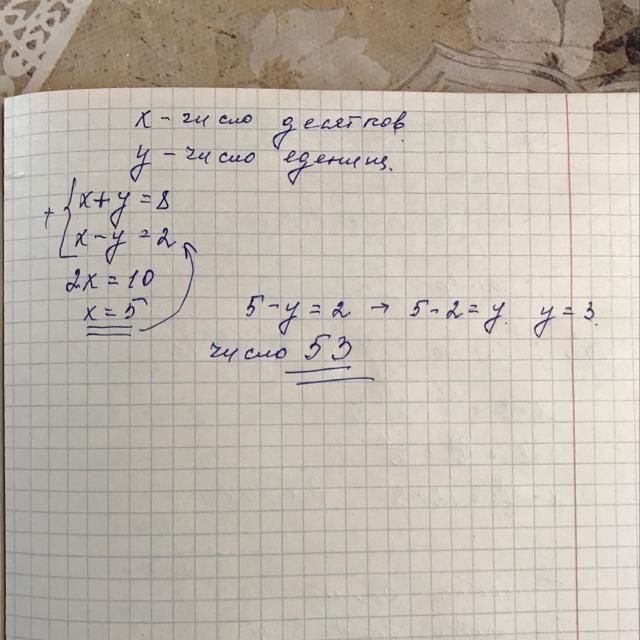 x - число десятков.
y - число едениц.
+ { x + y = 8
x - y = 2
2x = 10
x = 5
5 - y = 2 → 5 - 2 = y. y = 3.
число 53